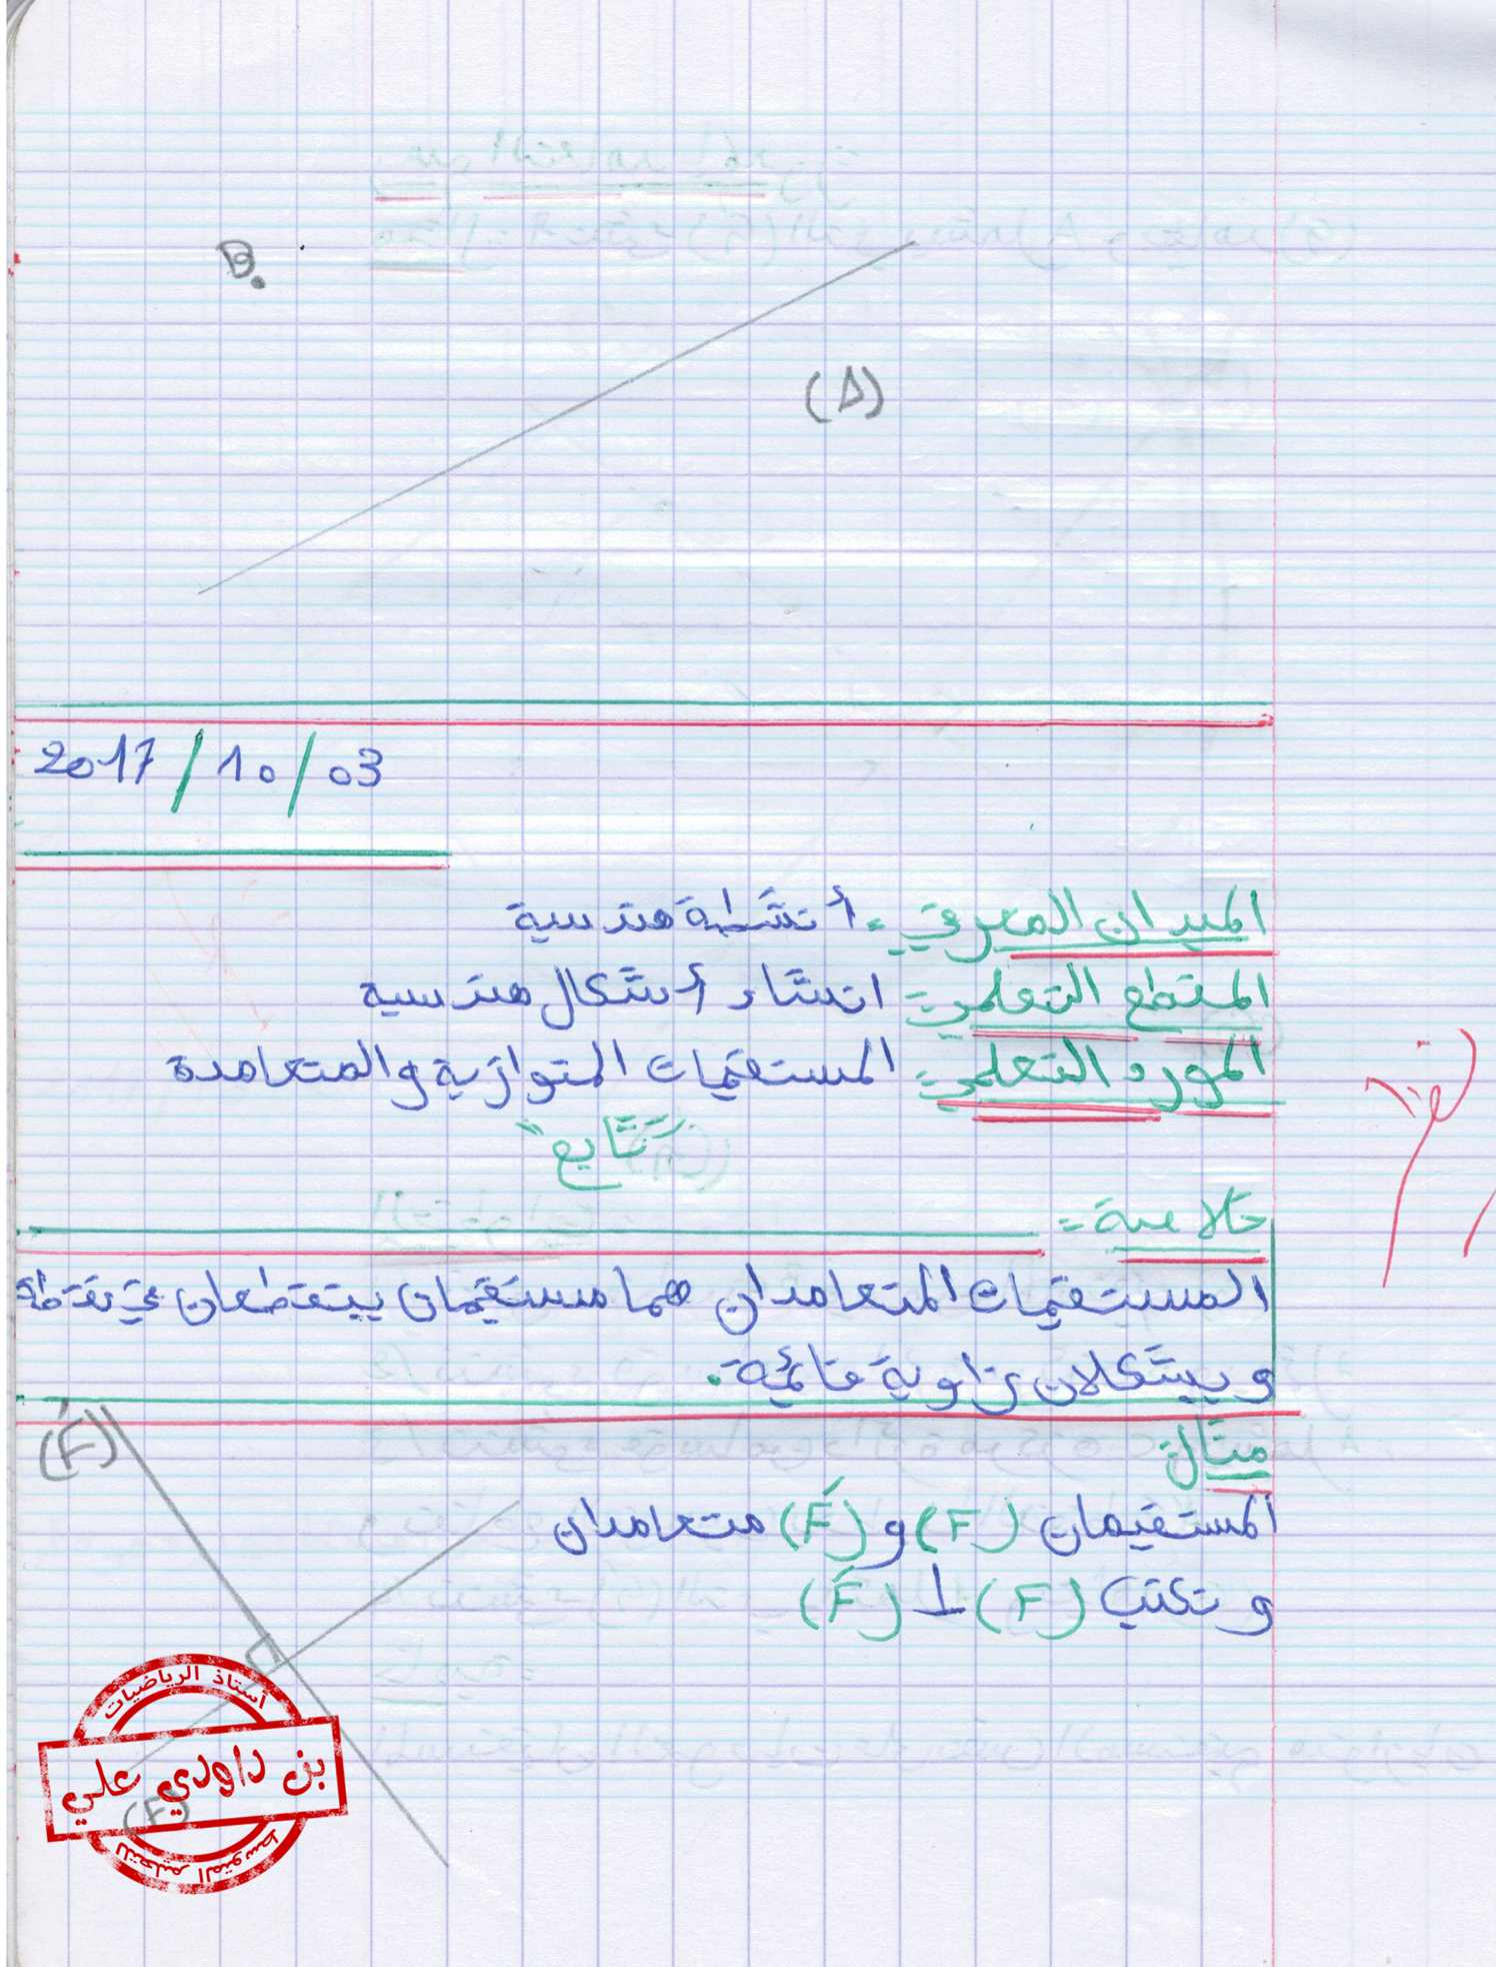 B.
(Δ)
2017/10/03
الميدان المعرفي: أنشطة هندسية
المقطع التعلمي: انشاء أشكال هندسية
المورد التعلمي: المستقيمات المتوازية والمتعامدة
"تابع"
خلاصة:
المستقيمات المتعامدان هما مستقيمان يتقطعان في نقطة
و يشكلان زاوية قائمة.
(F́)
مثال:
المستقيمان (F) و (F́) متعامدان
و نكتب (F) ⊥ (F́)
أستاذ الرياضيات
بن داودي علي
(F)
للتعليم المتوسط